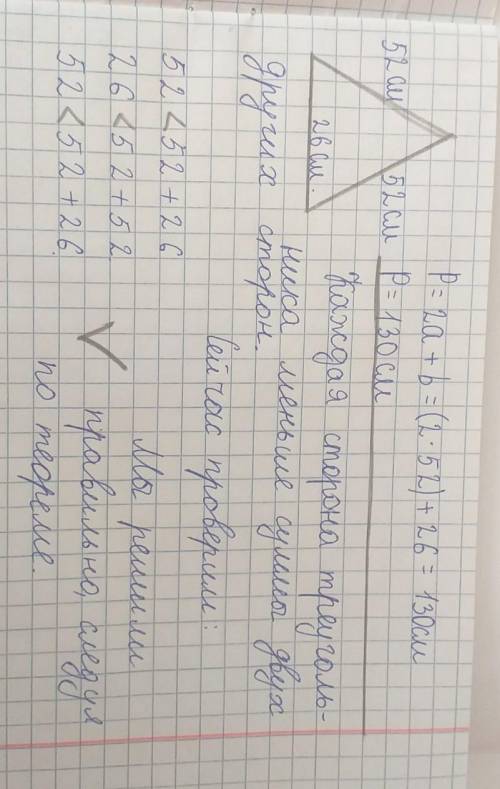 52 см
52 см
26 см.
P = 2a + b = (2·52) + 26 = 130см
P = 130 см
Каждая сторона треуголь-
ника меньше суммы двух
других сторон.
Сейчас проверим:
52 < 52 + 26
26 < 52 + 52
52 < 52 + 26.
Мы решили
правильно, следуя
по теореме.